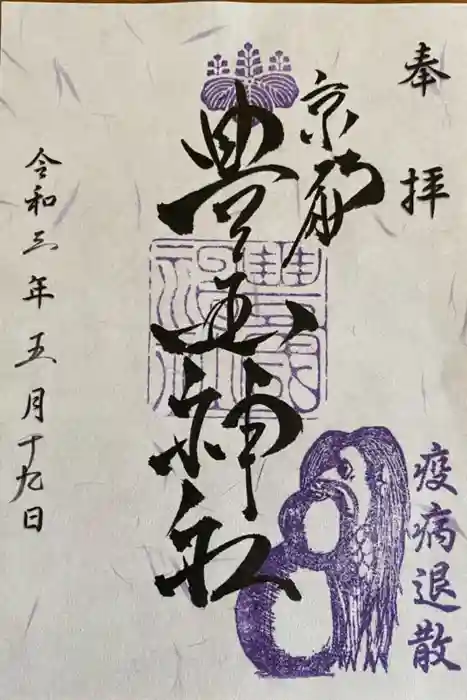 奉拝
京都
豊国神社
令和三年五月十九日
疫病退散